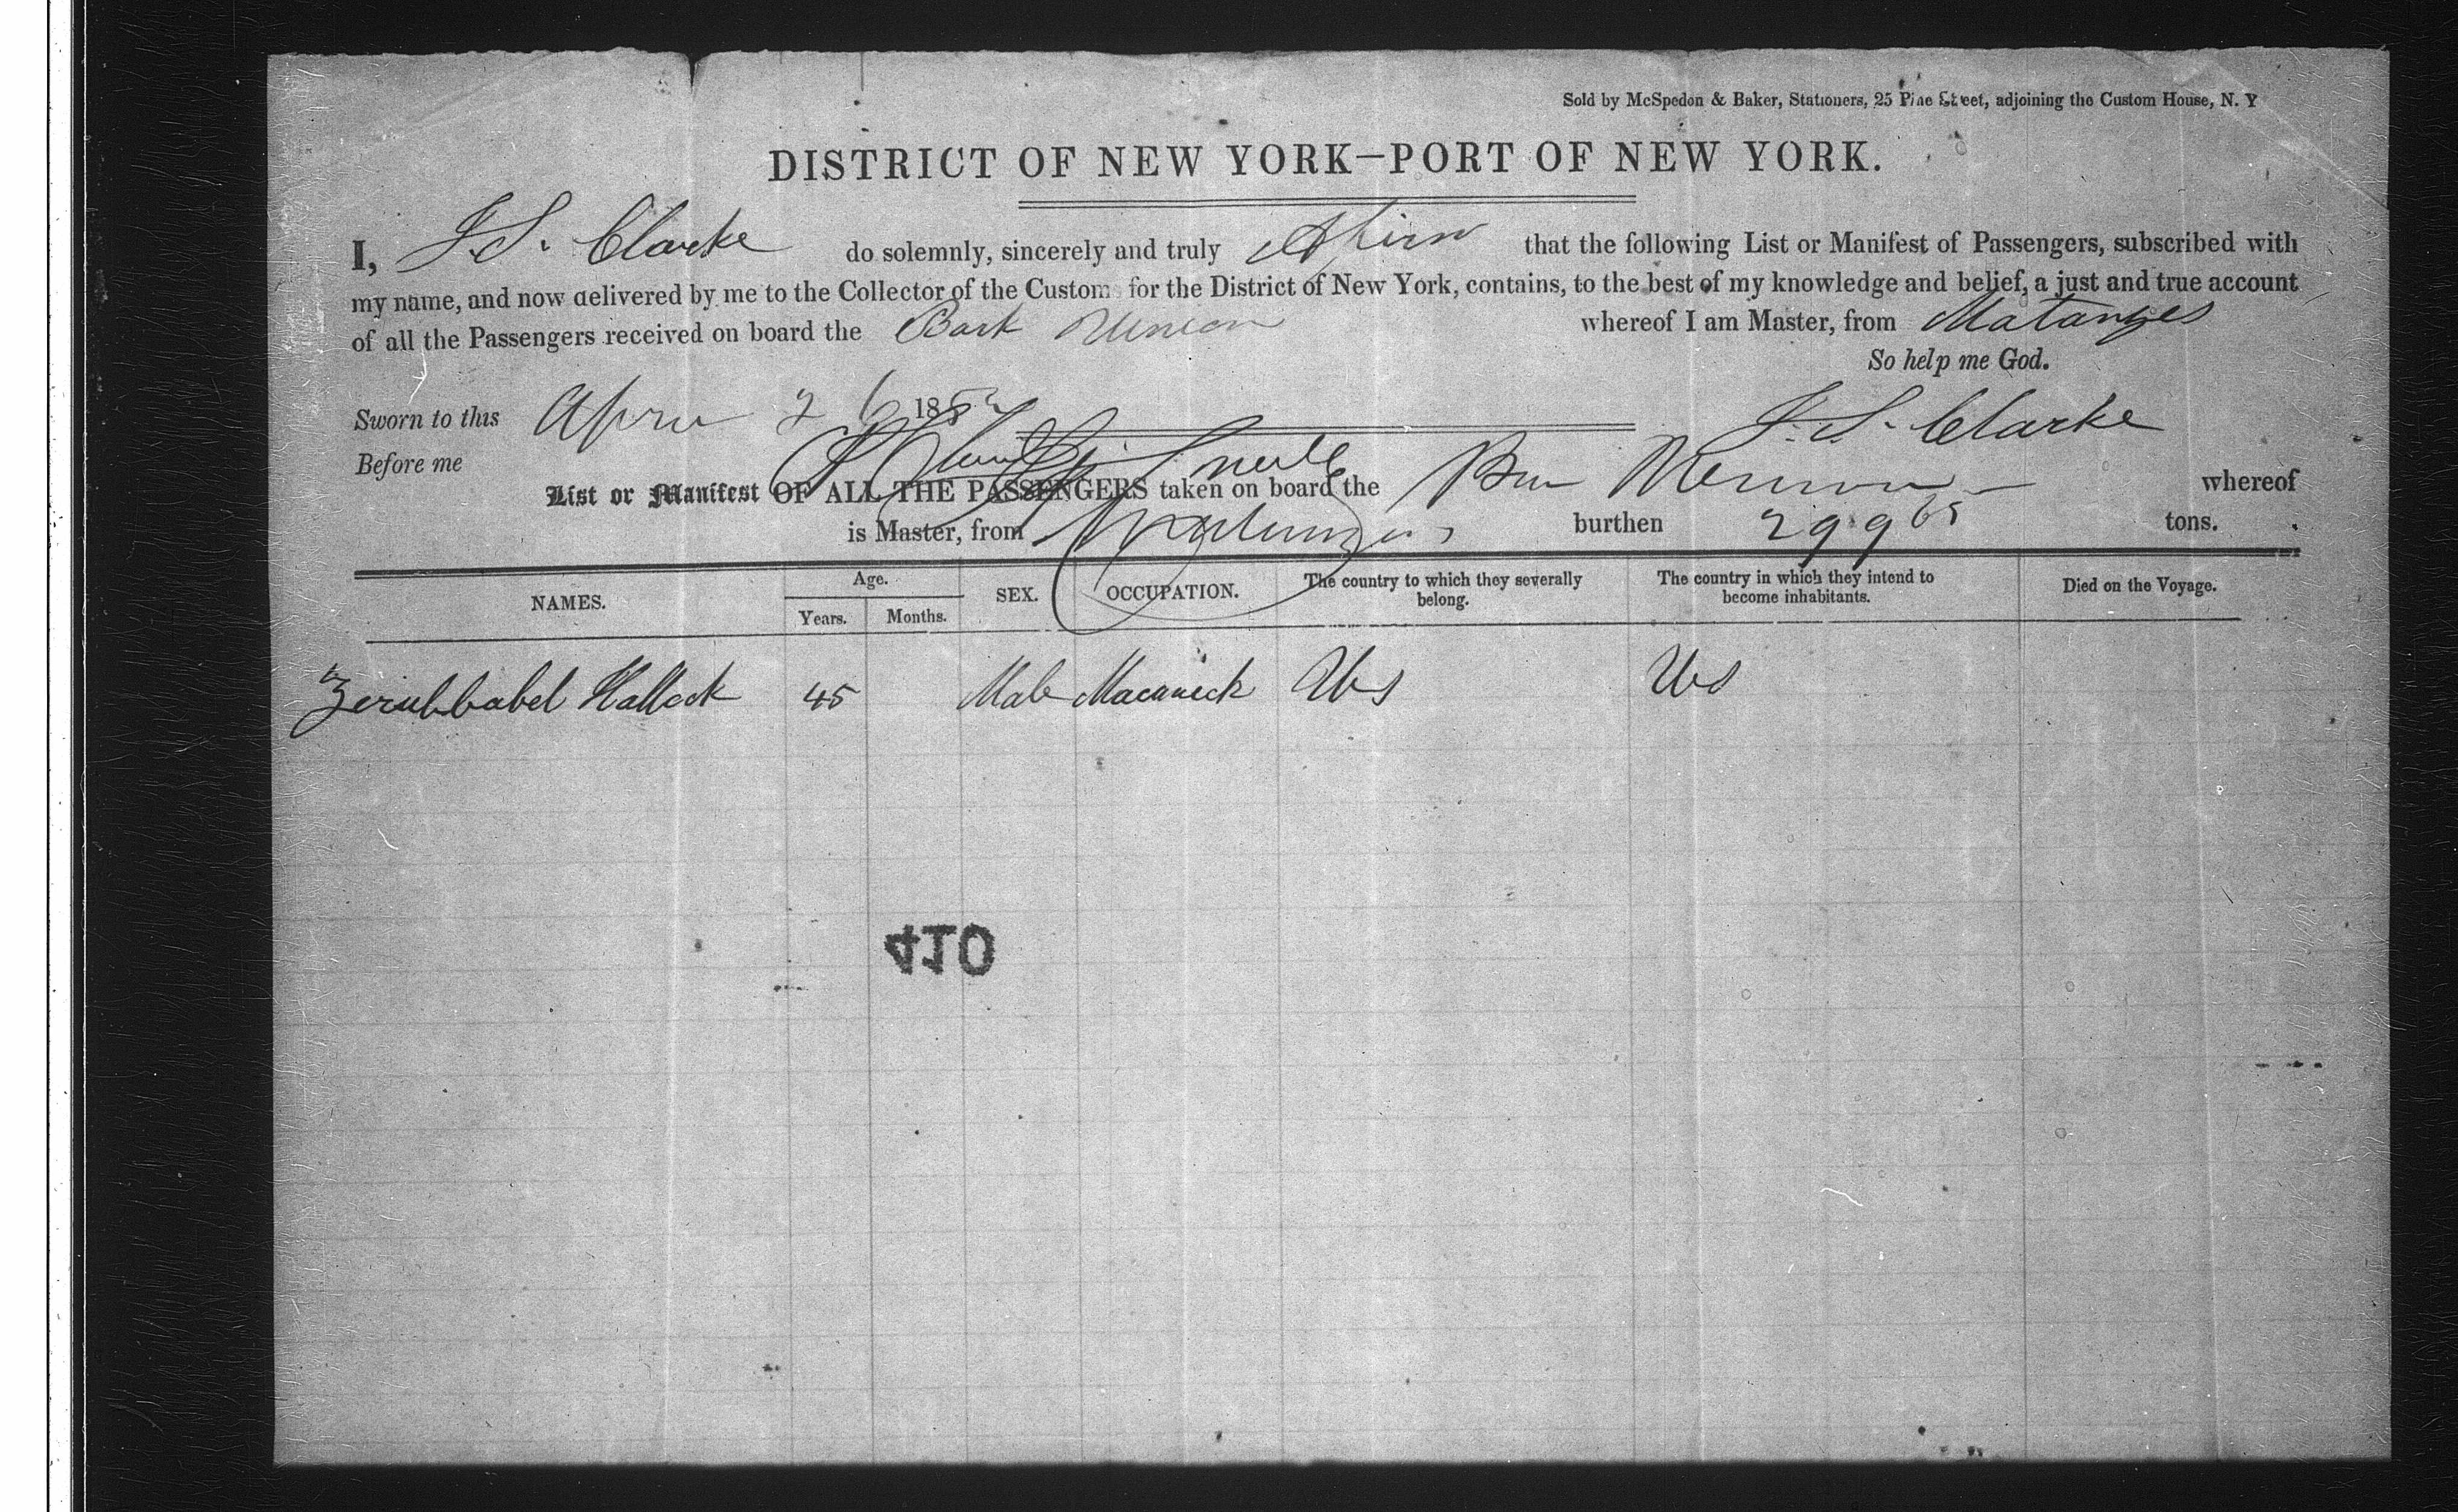 Sold by McSpedon & Baker, Stationers, 25 Pine Street, adjoining the Custom House, N. Y
DISTRICT OF NEW YORK—PORT OF NEW YORK.
I, J. S. Clarke do solemnly, sincerely and truly that the following List or Manifest of Passengers, subscribed with
my name, and now delivered by me to the Collector of the Customs for the District of New York, contains, to the best of my knowledge and belief, a just and true account
of all the Passengers received on board the Bark whereof I am Master, from Matanzes
So help me God.
Sworn to this April 26 185 J. S. Clarke
Before me
List or Manifest OF ALL THE PASSENGERS taken on board the whereof
is Master, from burthen 299 65 tons.
NAMES. Age. SEX. OCCUPATION. The country to which they severally belong. The country in which they intend to become inhabitants. Died on the Voyage.
Years. Months.
Zerubbabel Hallock 45 Male Macaneck Us Us
410